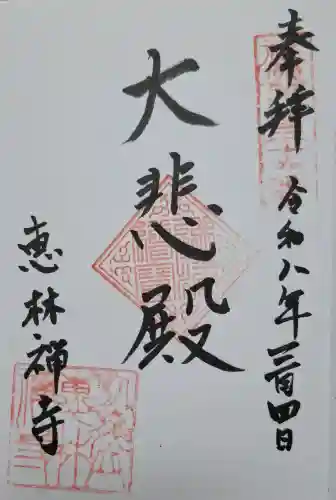 奉拝
令和八年三月四日
大悲殿
恵林禅寺